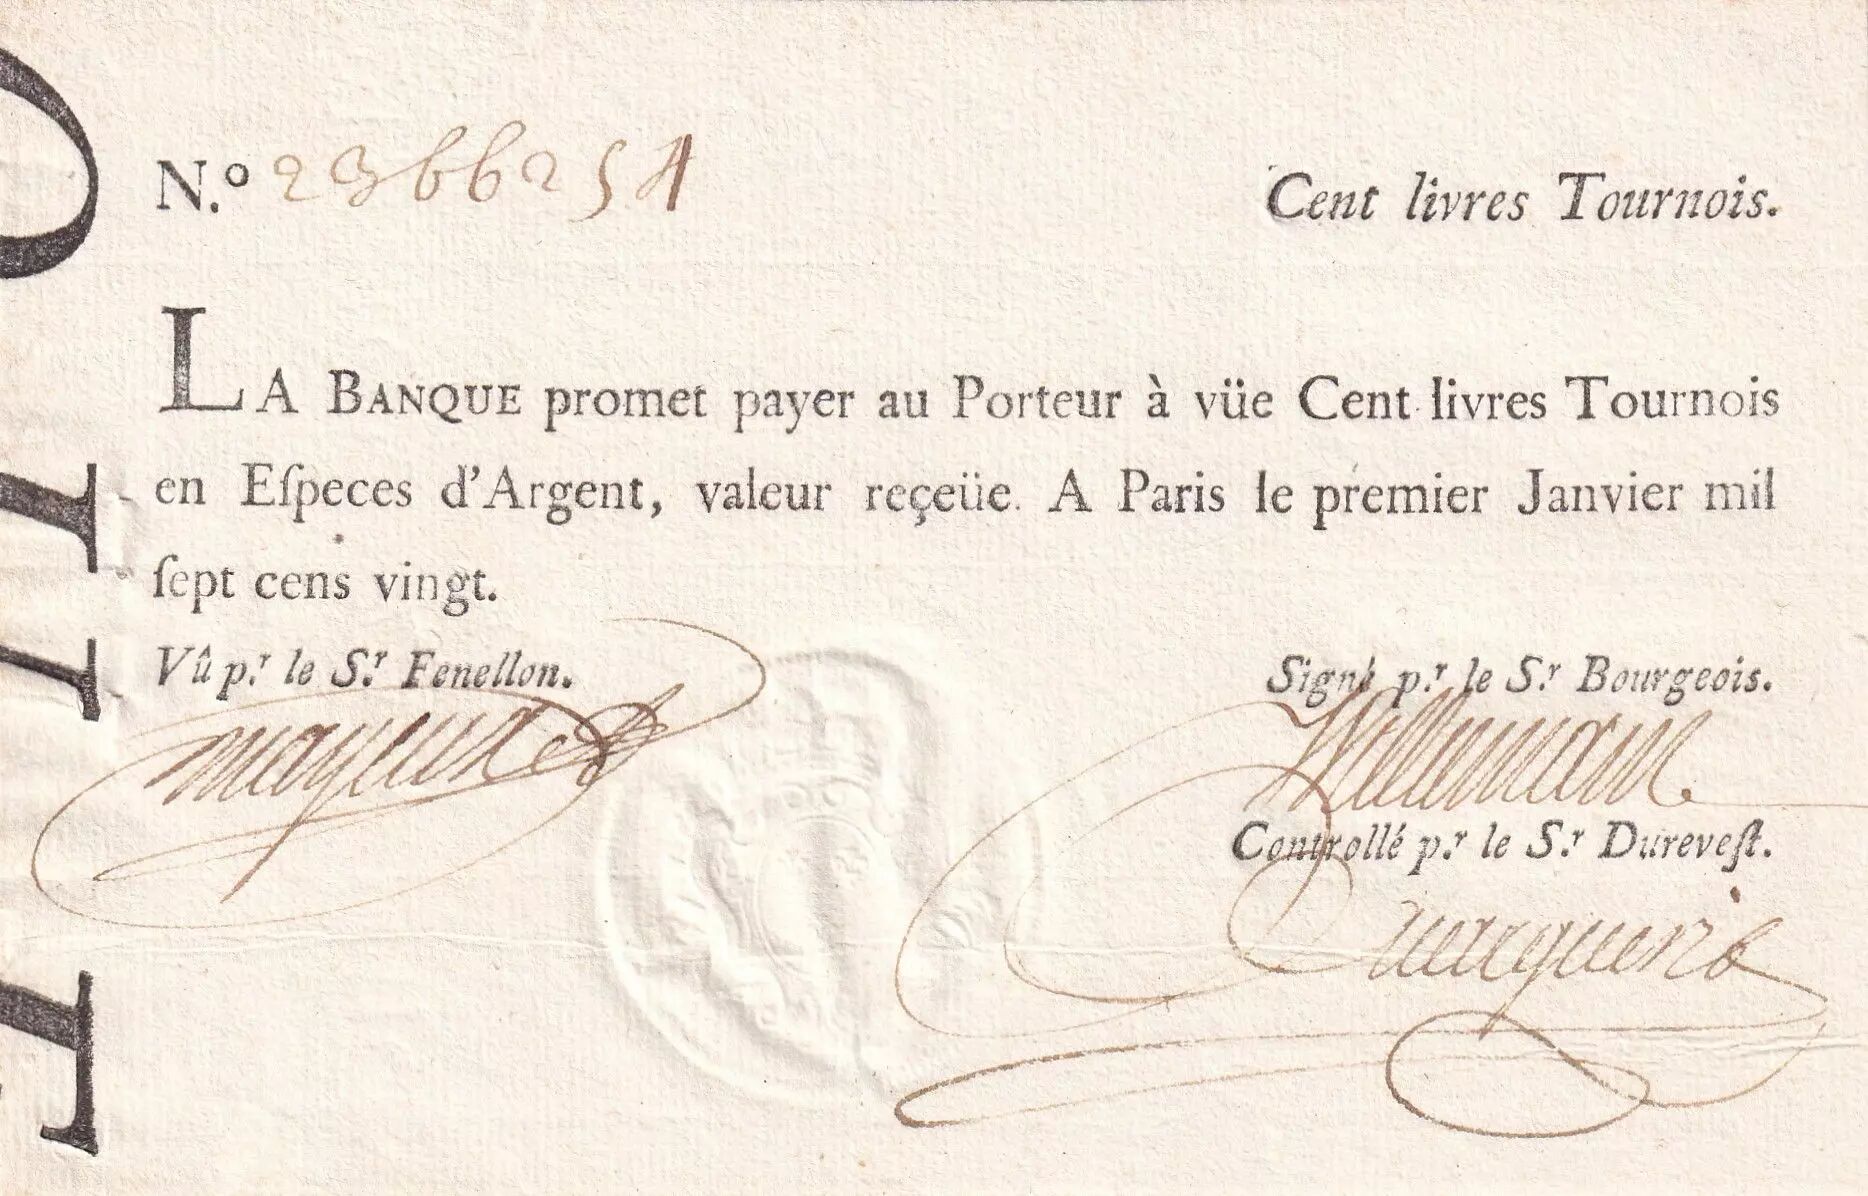 N.º 2366254
Cent livres Tournois.
LA BANQUE promet payer au Porteur à vüe Cent livres Tournois
en Eſpeces d'Argent, valeur reçeüe. A Paris le premier Janvier mil
ſept cens vingt.
Vû p.r le S.r Fenellon.
Signé p.r le S.r Bourgeois.
Controllé p.r le S.r Dureveſt.